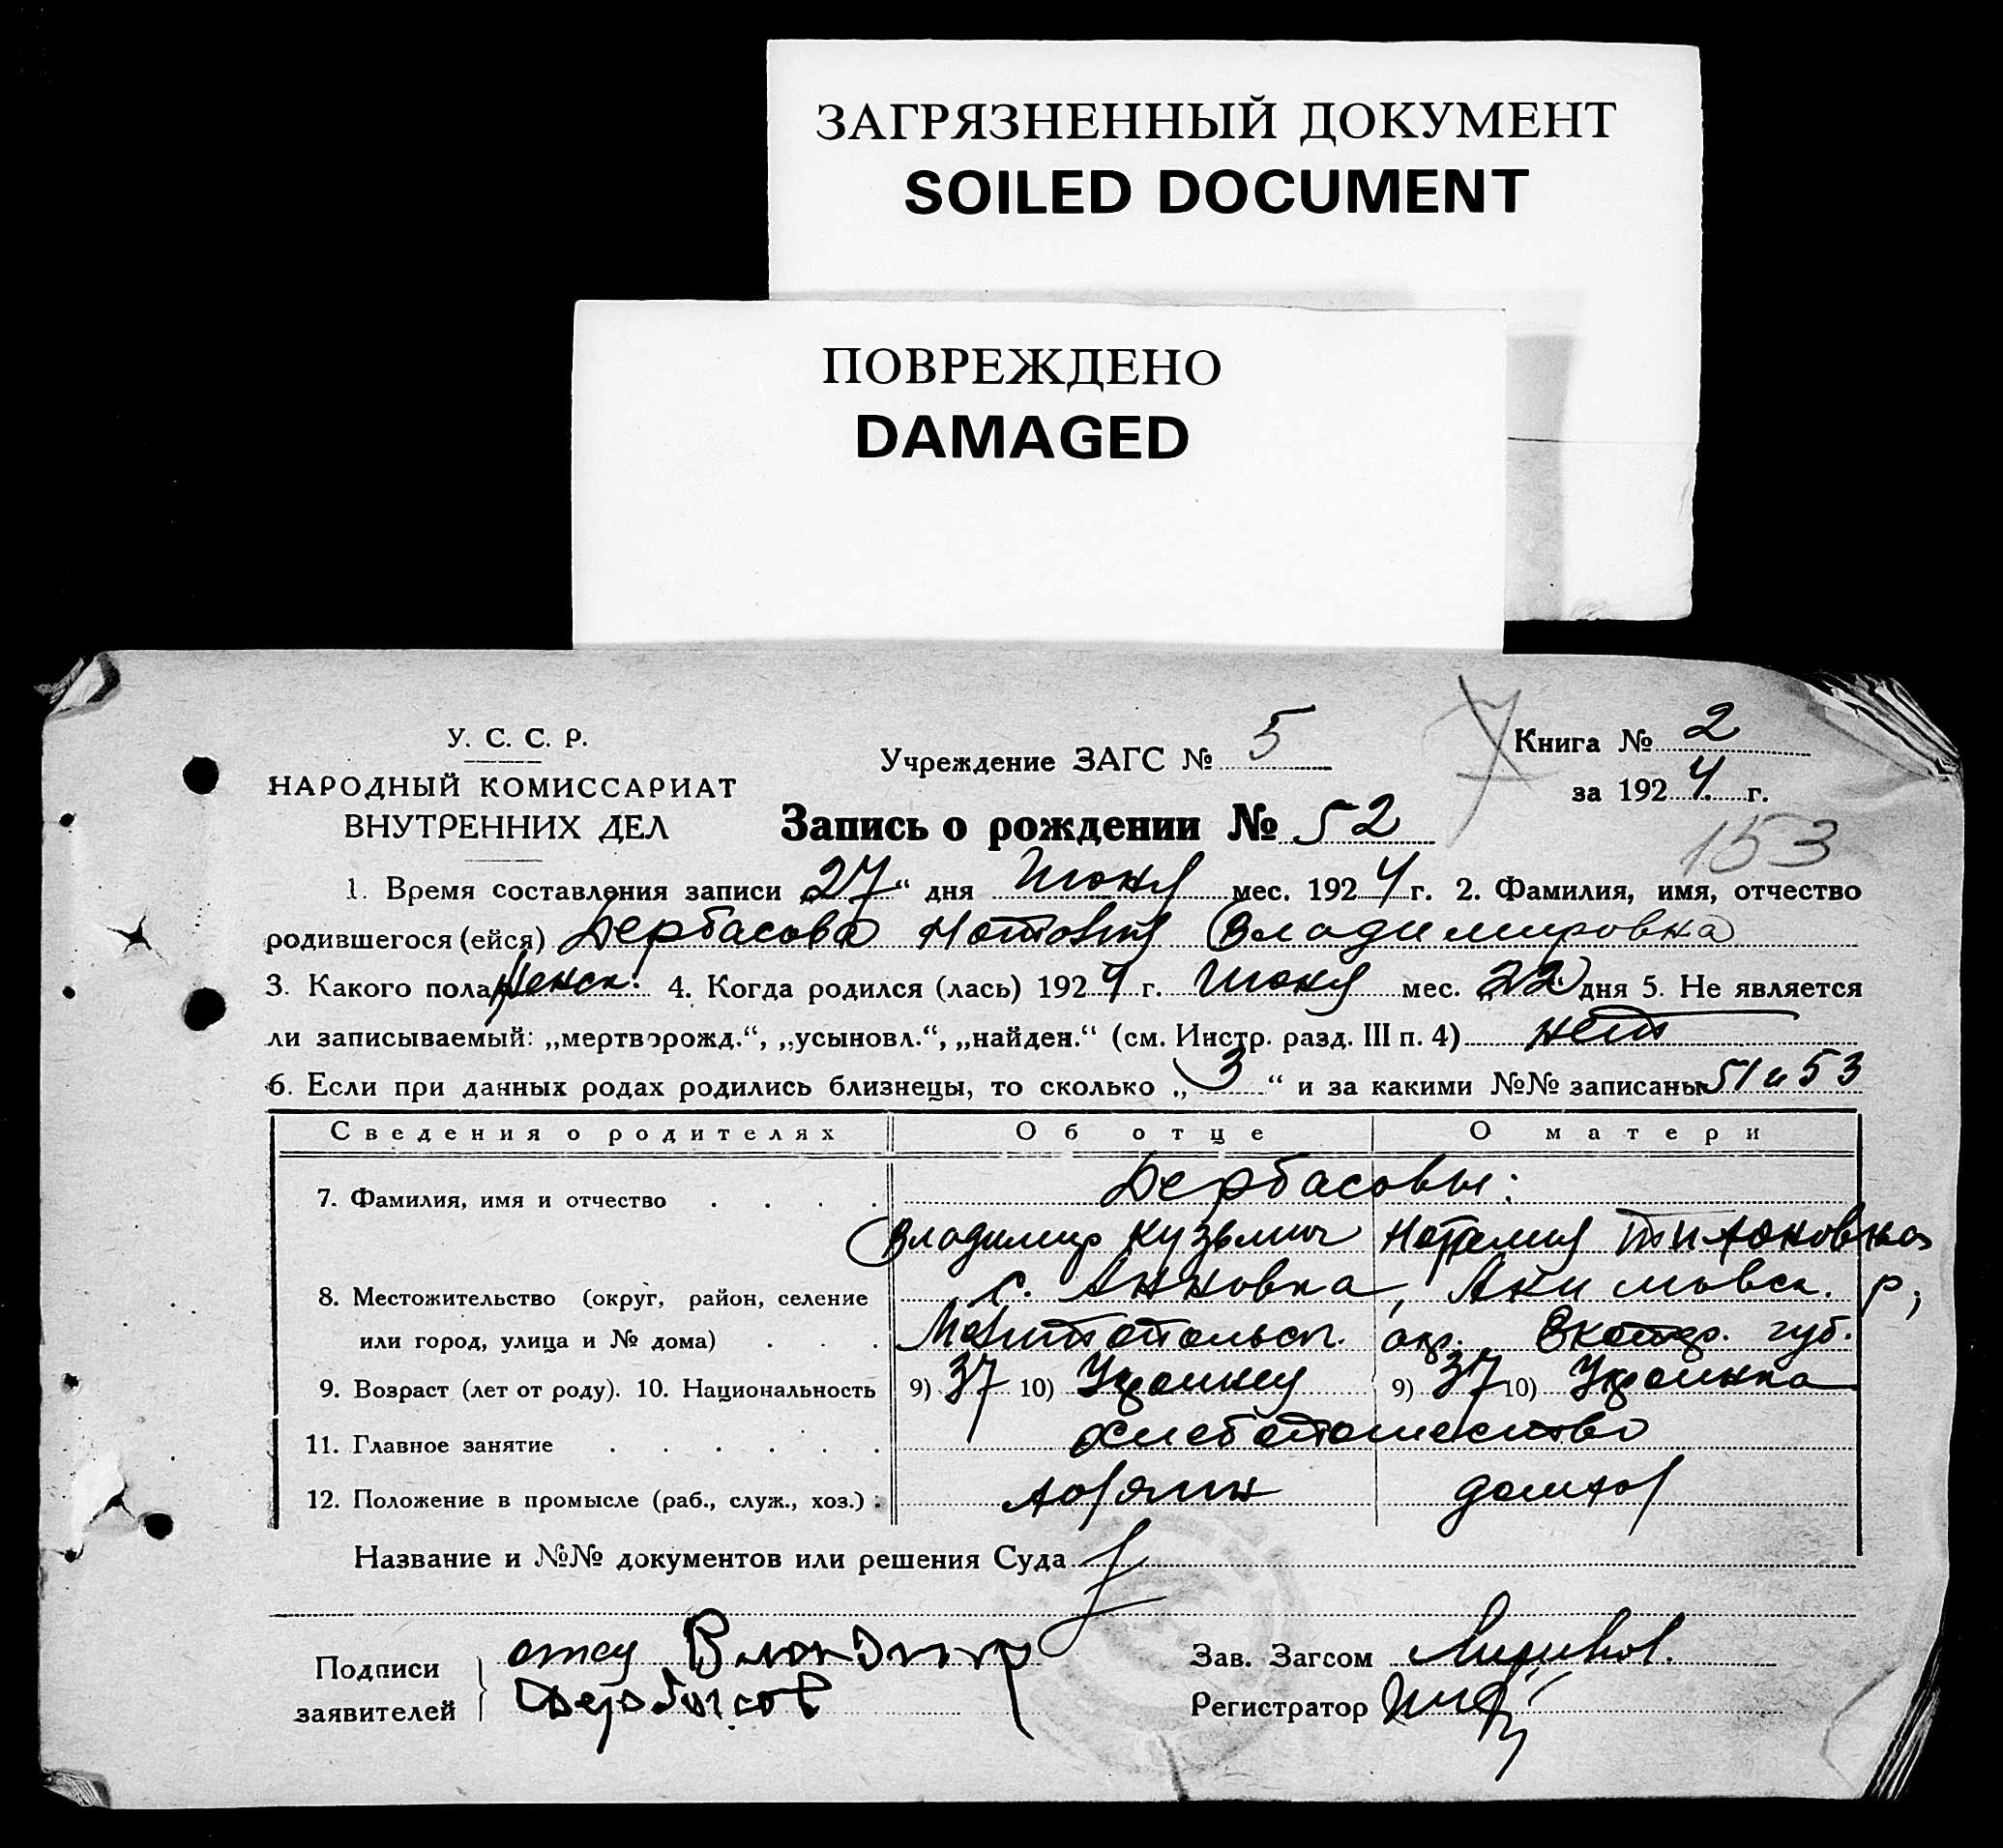 ЗАГРЯЗНЕННЫЙ ДОКУМЕНТ
SOILED DOCUMENT
ПОВРЕЖДЕНО
DAMAGED
У. С. С. Р.
НАРОДНЫЙ КОМИССАРИАТ
ВНУТРЕННИХ ДЕЛ
Учреждение ЗАГС № 5
Книга № 2
за 1924 г.
Запись о рождении № 52
153
1. Время составления записи „27“ дня Июня мес. 1924 г. 2. Фамилия, имя, отчество
родившегося (ейся) Дербасова Наталия Владимировна
3. Какого пола Женск. 4. Когда родился (лась) 1924 г. Июня мес. „22“ дня 5. Не является
ли записываемый: „мертворожд.“, „усыновл.“, „найден.“ (см. Инстр. разд. III п. 4) нет
6. Если при данных родах родились близнецы, то сколько „3“ и за какими №№ записаны 51 и 53
Сведения о родителях Об отце О матери
7. Фамилия, имя и отчество Дербасовы:
Владимир Кузьмич Наталия Тихоновна
8. Местожительство (округ, район, селение с. Анновка, Акимовск. р,
или город, улица и № дома) Мелитопольск. окр. Екатер. губ.
9. Возраст (лет от роду). 10. Национальность 9) 37 10) Украинец 9) 37 10) Украинка
11. Главное занятие хлебопашество
12. Положение в промысле (раб., служ., хоз.) хозяин домхоз
Название и №№ документов или решения Суда
Подписи
заявителей
отец Владимир
Дербасов
Зав. Загсом
Регистратор